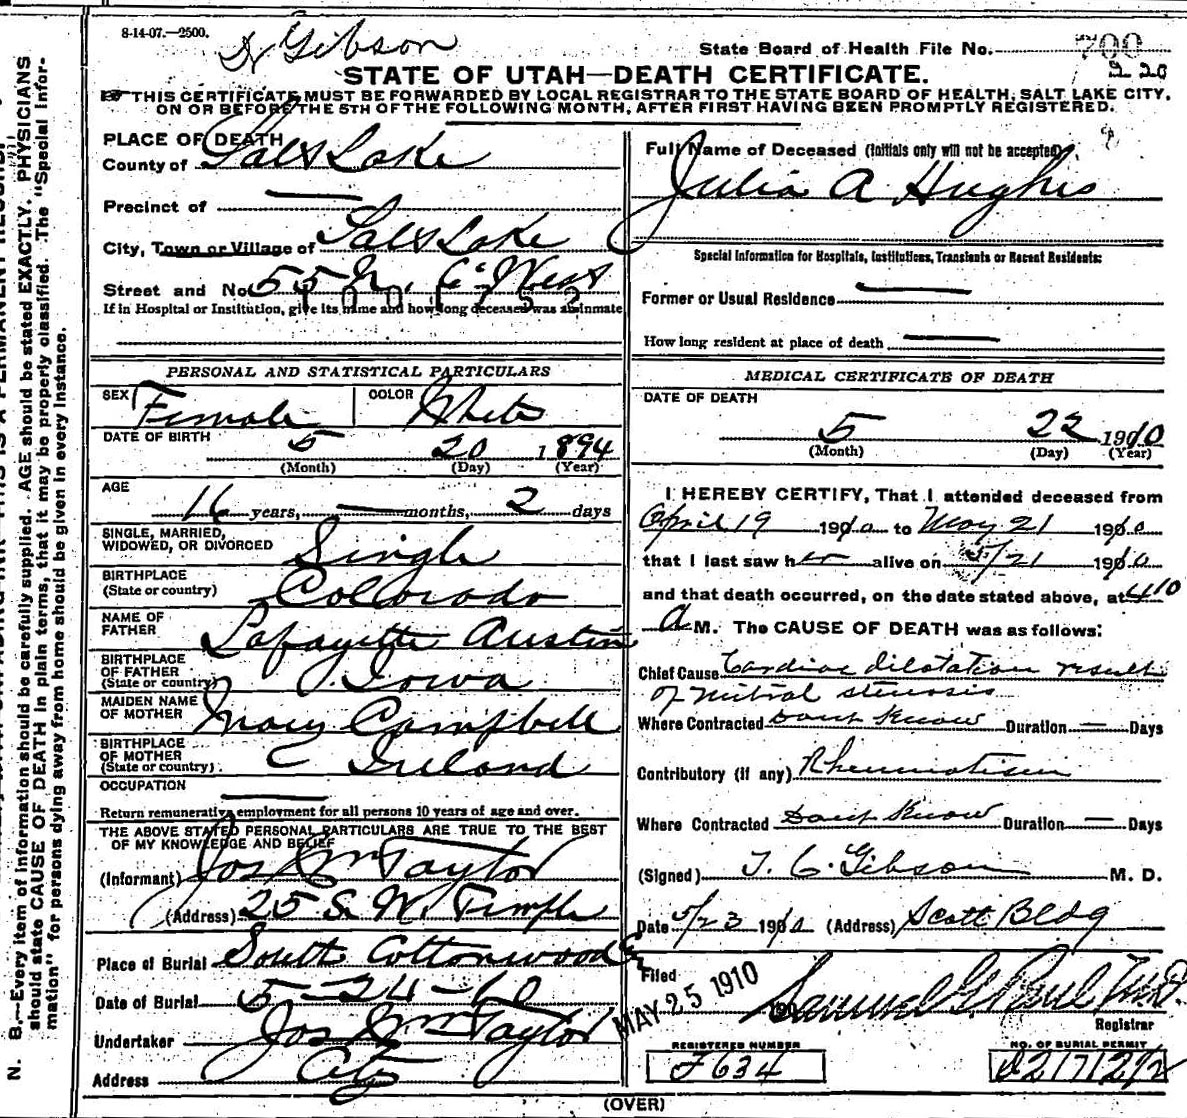 8-14-07.—2500.
Gibson
State Board of Health File No. 700
220
STATE OF UTAH—DEATH CERTIFICATE.
THIS CERTIFICATE MUST BE FORWARDED BY LOCAL REGISTRAR TO THE STATE BOARD OF HEALTH, SALT LAKE CITY,
ON OR BEFORE THE 5TH OF THE FOLLOWING MONTH, AFTER FIRST HAVING BEEN PROMPTLY REGISTERED.
PLACE OF DEATH
County of Salt Lake
Precinct of —
City, Town or Village of Salt Lake
Street and No. 55 N. 6" West
If in Hospital or Institution, give its name and how long deceased was an inmate
PERSONAL AND STATISTICAL PARTICULARS
SEX Female COLOR White
DATE OF BIRTH 5 20 1894
(Month) (Day) (Year)
AGE
16 years, — months, 2 days
SINGLE, MARRIED,
WIDOWED, OR DIVORCED Single
BIRTHPLACE
(State or country) Collorado
NAME OF
FATHER Lafayette Austin
BIRTHPLACE
OF FATHER
(State or country) Iowa
MAIDEN NAME
OF MOTHER Mary Campbell
BIRTHPLACE
OF MOTHER
(State or country) Ireland
OCCUPATION —
Return remunerative employment for all persons 10 years of age and over.
THE ABOVE STATED PERSONAL PARTICULARS ARE TRUE TO THE BEST
OF MY KNOWLEDGE AND BELIEF
(Informant) Jos Wm Taylor
(Address) 25 S. W. Temple
Place of Burial South Cottonwood
Date of Burial 5-24-10
Undertaker Jos Wm Taylor
Address City
Full Name of Deceased (Initials only will not be accepted)
Julia A Hughes
Special Information for Hospitals, Institutions, Transients or Recent Residents:
Former or Usual Residence —
How long resident at place of death —
MEDICAL CERTIFICATE OF DEATH
DATE OF DEATH
5 22 1910
(Month) (Day) (Year)
I HEREBY CERTIFY, That I attended deceased from
April 19 1910 to May 21 1910
that I last saw her alive on 5/21 1910
and that death occurred, on the date stated above, at 410
A M. The CAUSE OF DEATH was as follows:
Chief Cause Cardiac dilatation result
of mitral stenosis
Where Contracted Dont Know Duration — Days
Contributory (if any) Rheumatism
Where Contracted Dont Know Duration — Days
(Signed) T. C. Gibson M. D.
Date 5/23 1910 (Address) Scott Bldg
Filed MAY 25 1910 190 Samuel G. Paul M.D.
Registrar
REGISTERED NUMBER NO. OF BURIAL PERMIT
F634
(OVER)
N. B.—Every item of information should be carefully supplied. AGE should be stated EXACTLY. PHYSICIANS
should state CAUSE OF DEATH in plain terms, that it may be properly classified. The "Special Infor-
mation" for persons dying away from home should be given in every instance.